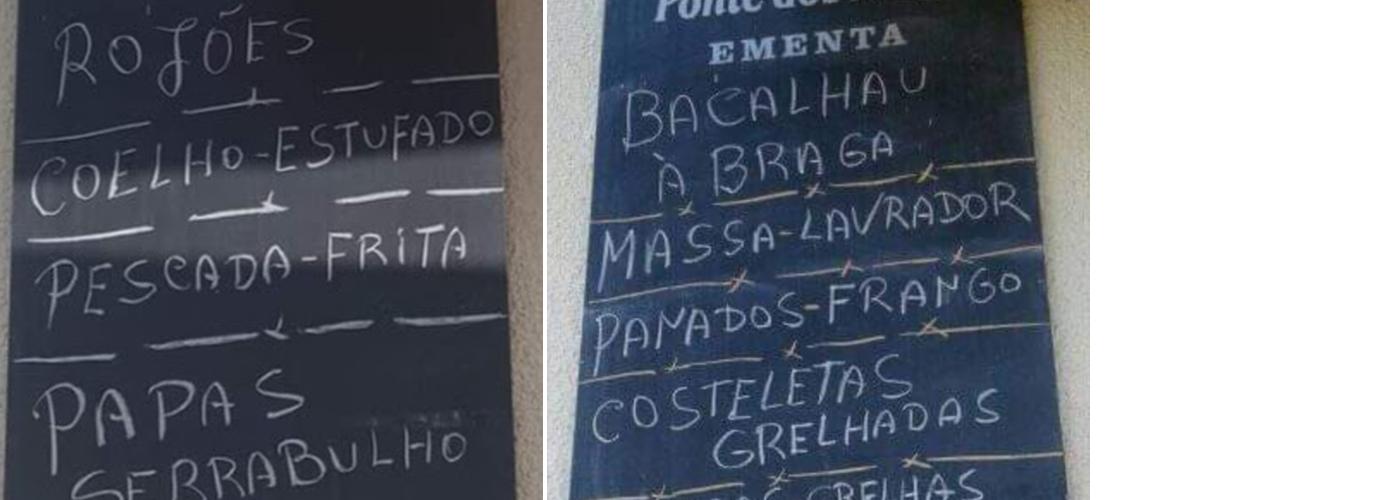 ROJÕES
COELHO-ESTUFADO
PESCADA-FRITA
PAPAS
SERRABULHO
Ponte
EMENTA
BACALHAU
À BRAGA
MASSA-LAVRADOR
PANADOS-FRANGO
COSTELETAS
GRELHADAS